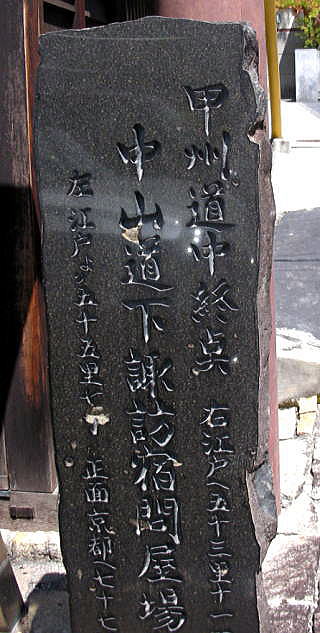 甲州道中終点 右江戸へ五十三里十一
中山道下諏訪宿問屋場
左 江戸より五十五里七丁 正面京都へ七十七